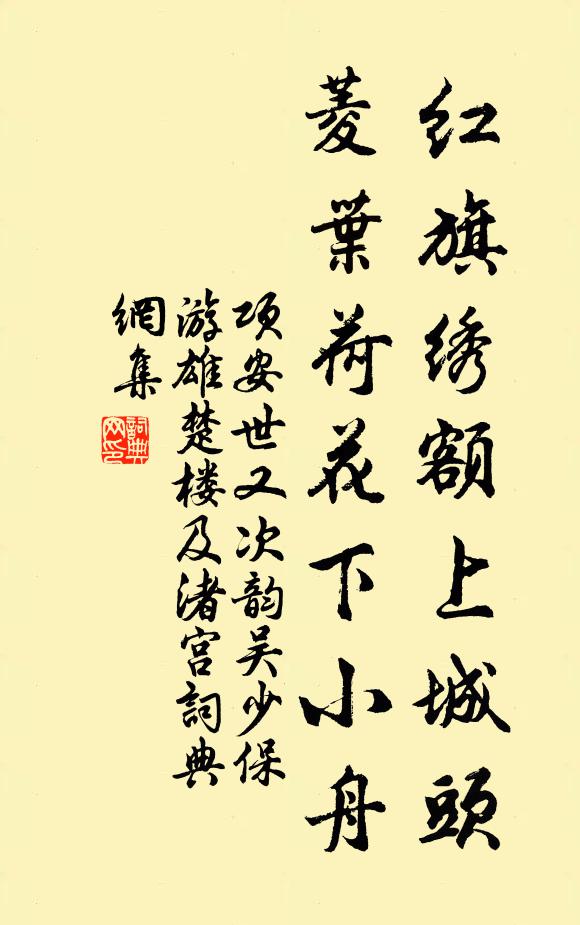 红旗绣额上城頭
菱葉荷花下小舟
项安世又次韵吴少保
游雄楚楼及渚宫詞典
網集
詞典
网印